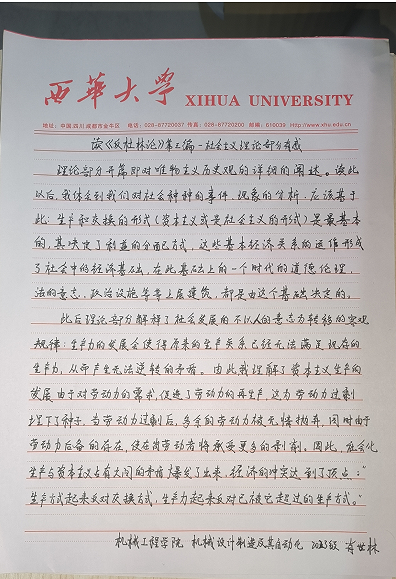 西華大学 XIHUA UNIVERSITY
地址：中国.四川.成都市金牛区 电话：028-87720037 传真：028-87720200 邮编：610039 Http://www.xhu.edu.cn
读《反杜林论》第三编-社会主义理论部分有感
理论部分开篇即对唯物主义历史观的详细的阐述。读此
以后，我体会到我们对社会种种的事件、现象的分析，应该基于
此：生产和交换的形式（资本主义或是社会主义的形式）是最基本
的，其决定了利益的分配方式，这些基本经济关系的运作形成
了社会中的经济基础，在此基础上的一个时代的道德伦理，
法的意志，政治设施等等上层建筑，都是由这个基础决定的。
此后理论部分解释了社会发展的不以人的意志为转移的客观
规律：生产力的发展会使得原来的生产关系已经无法满足现存的
生产力，从而产生无法逆转的矛盾。由此我理解了资本主义生产的
发展由于对劳动力的需求，促进了劳动力的再生产，这为劳动力过剩
埋下了种子，当劳动力过剩后，多余的劳动力被无情抛弃，同时由于
劳动力后备的存在，使在岗劳动者将承受更多的剥削。因此，社会化
生产与资本主义占有之间的矛盾爆发了出来，经济的冲突达到了顶点：“
生产方式起来反对交换方式，生产力起来反对已被它超过的生产方式。”
机械工程学院 机械设计制造及其自动化 2023级 肖世林